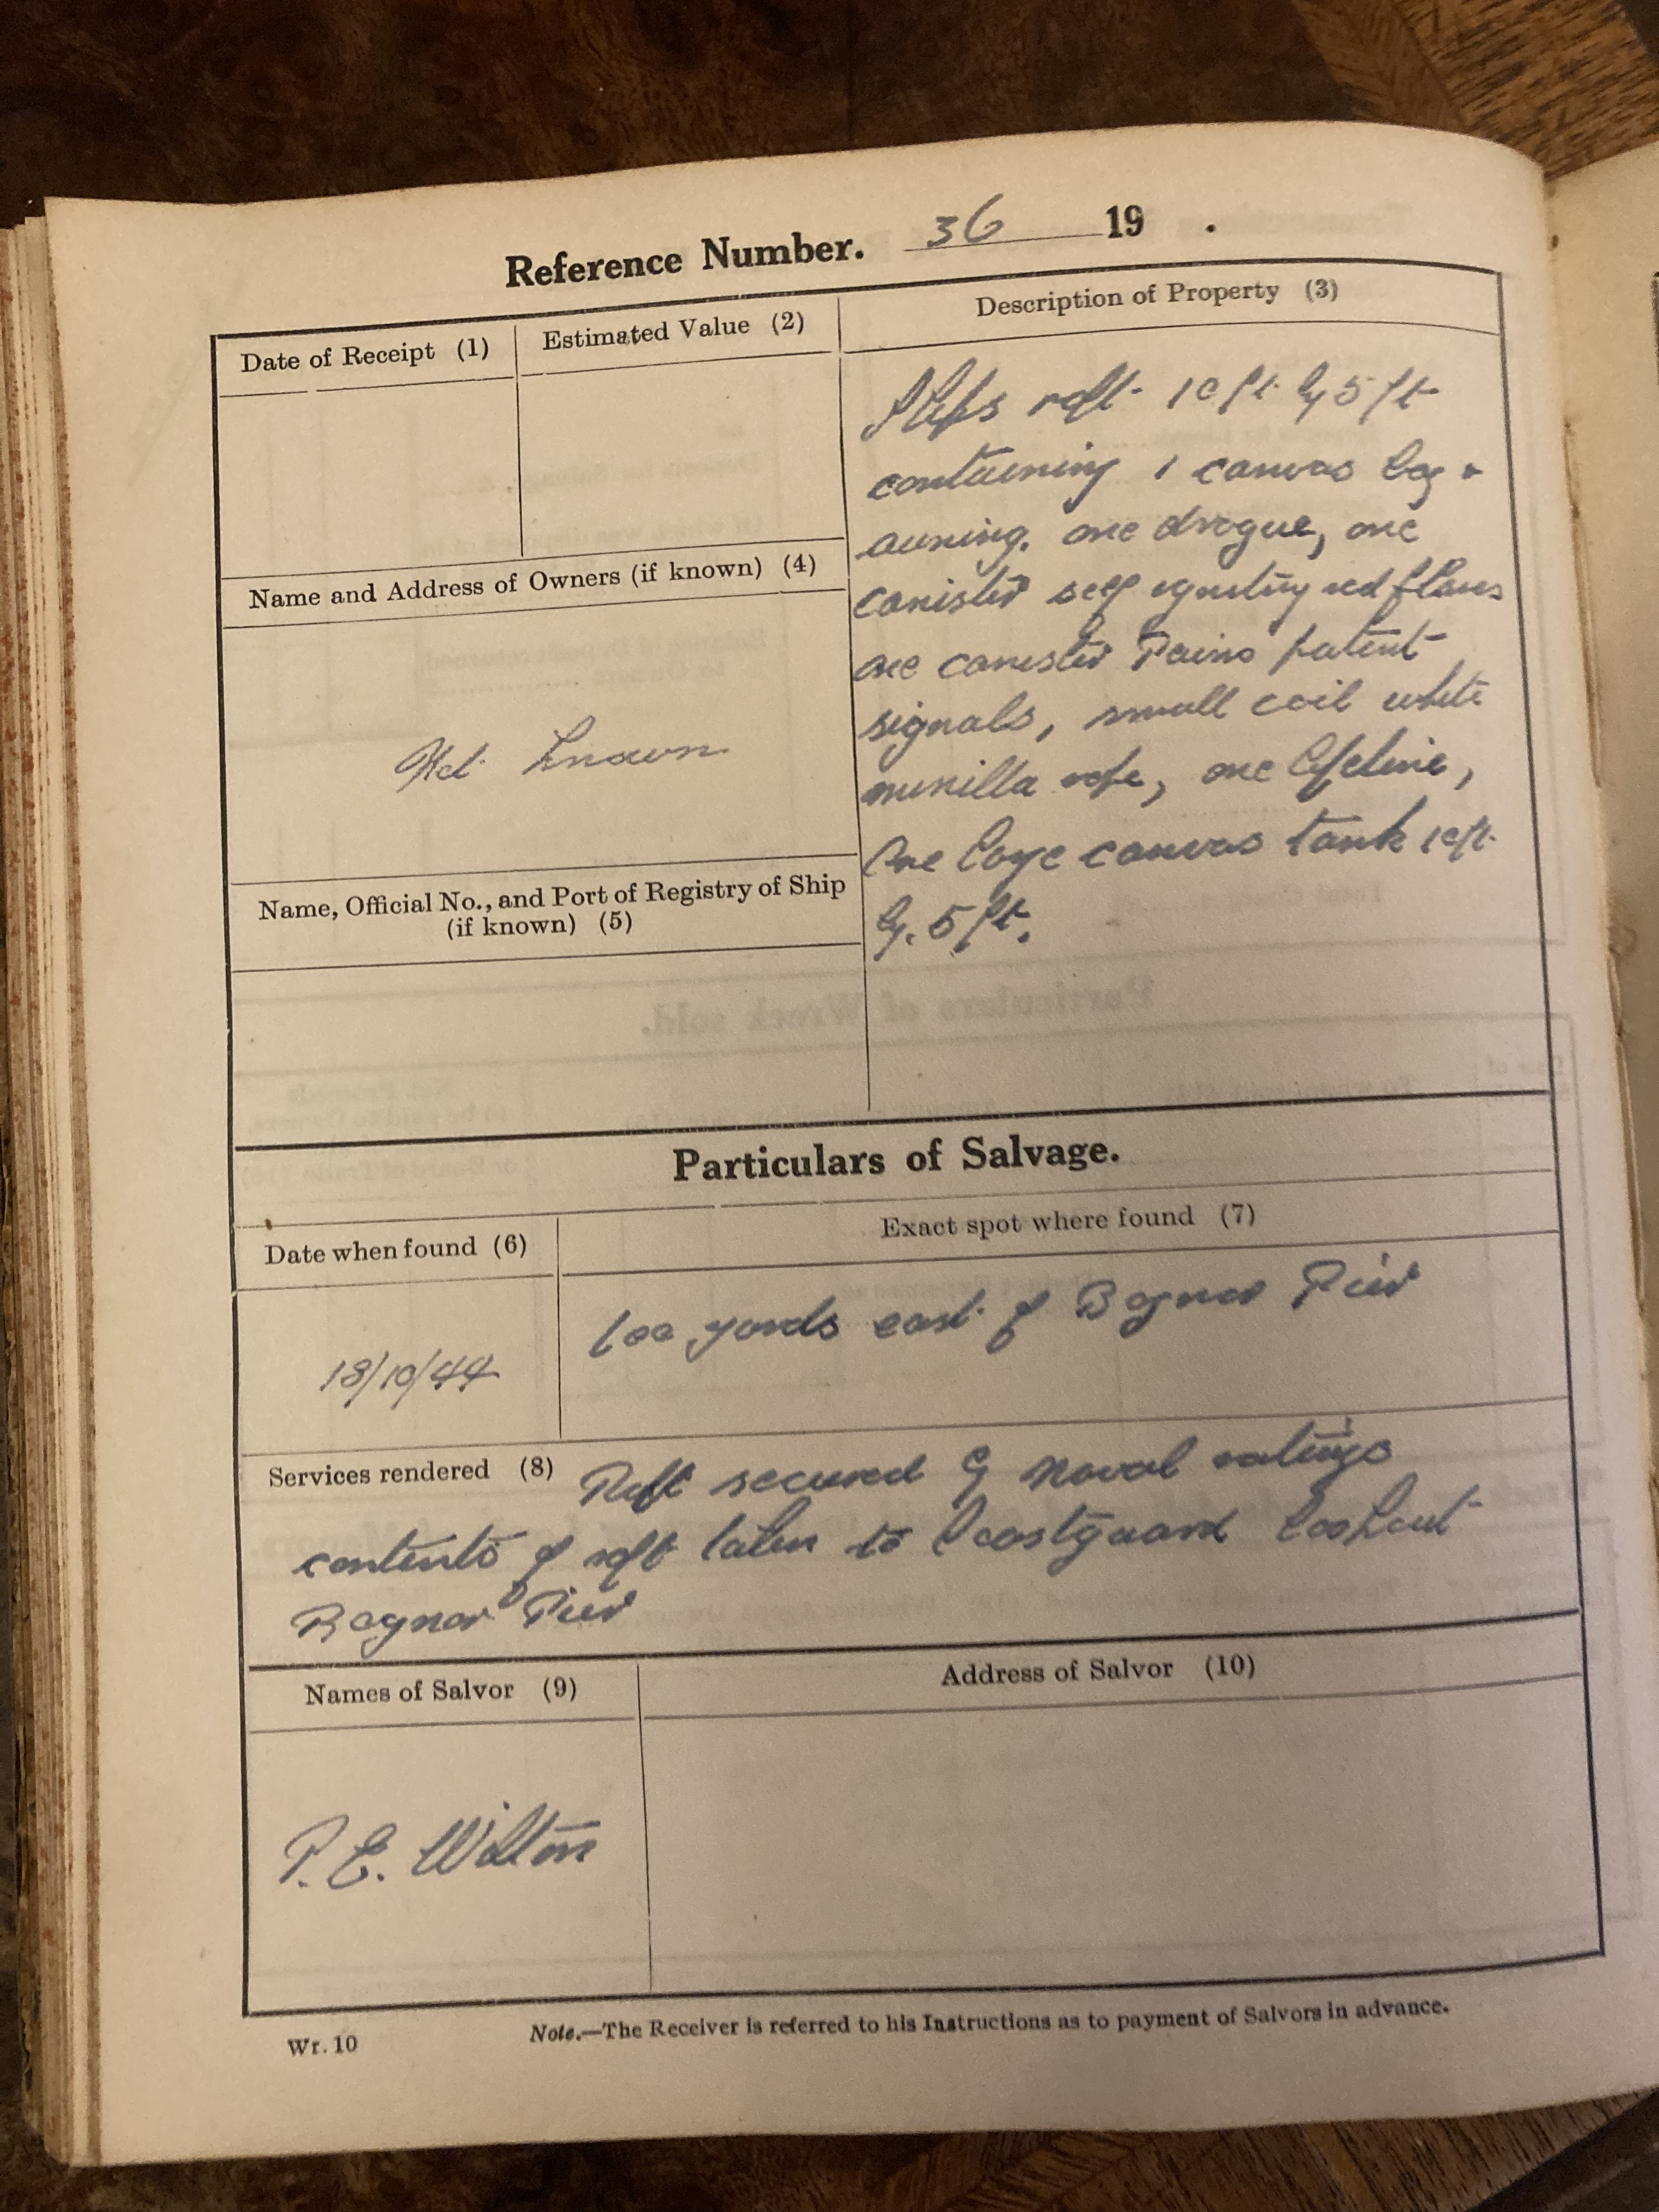 Reference Number. 36 19 .
Date of Receipt (1)
Estimated Value (2)
Description of Property (3)
Ships raft 10 ft by 5 ft
containing 1 canvas bag +
awning, one drogue, one
canister self igniting red flares
one canister Pains patent
signals, small coil white
manilla rope, one lifeline,
One large canvas tank 10ft
by 5 ft.
Name and Address of Owners (if known) (4)
Not Known
Name, Official No., and Port of Registry of Ship
(if known) (5)
Particulars of Salvage.
Date when found (6)
Exact spot where found (7)
18/10/44
100 yards east of Bognor Pier
Services rendered (8) Raft secured by naval ratings
contents of raft taken to Coastguard Lookout
Bognor Pier
Names of Salvor (9)
Address of Salvor (10)
P. E. Wilton
Wr. 10
Note.—The Receiver is referred to his Instructions as to payment of Salvors in advance.